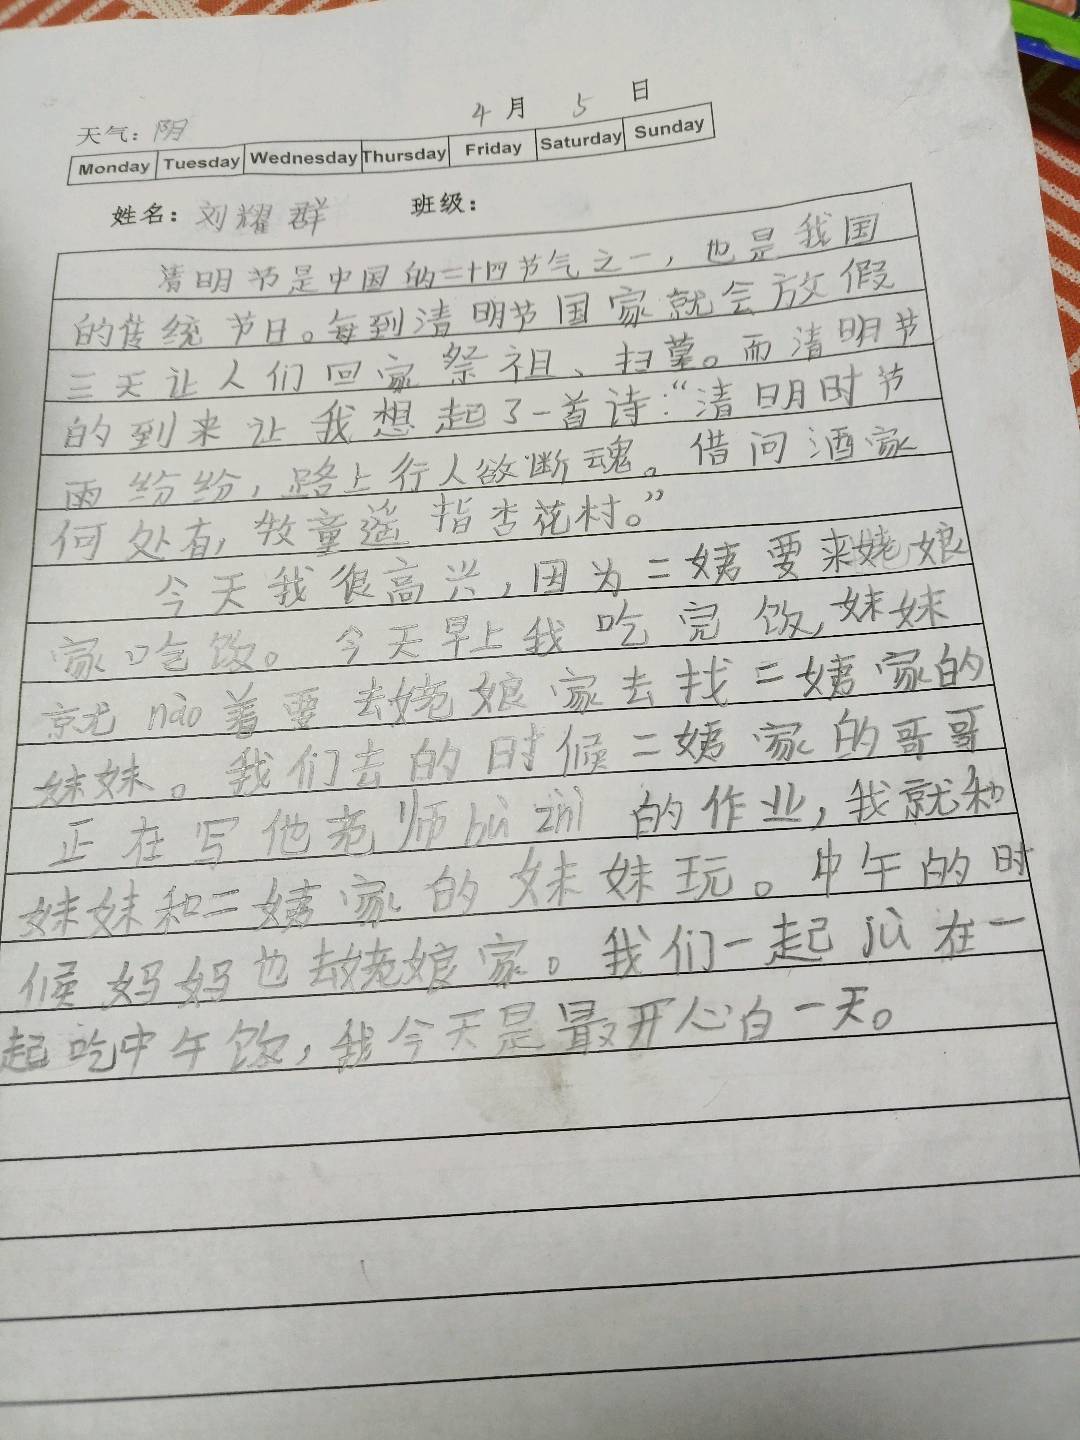 4月 5 日
天气：阴
Monday Tuesday Wednesday Thursday Friday Saturday Sunday
姓名：刘耀群 班级：
清明节是中国的二十四节气之一，也是我国
的传统节日。每到清明节国家就会放假
三天让人们回家祭祖、扫墓。而清明节
的到来让我想起了一首诗：“清明时节
雨纷纷，路上行人欲断魂。借问酒家
何处有，牧童遥指杏花村。”
今天我很高兴，因为二姨要来姥娘
家吃饭。今天早上我吃完饭，妹妹
就nào着要去姥娘家去找二姨家的
妹妹。我们去的时候二姨家的哥哥
正在写他老师bù zhì的作业，我就和
妹妹和二姨家的妹妹玩。中午的时
候妈妈也去姥娘家。我们一起jù在一
起吃中午饭，我今天是最开心白一天。